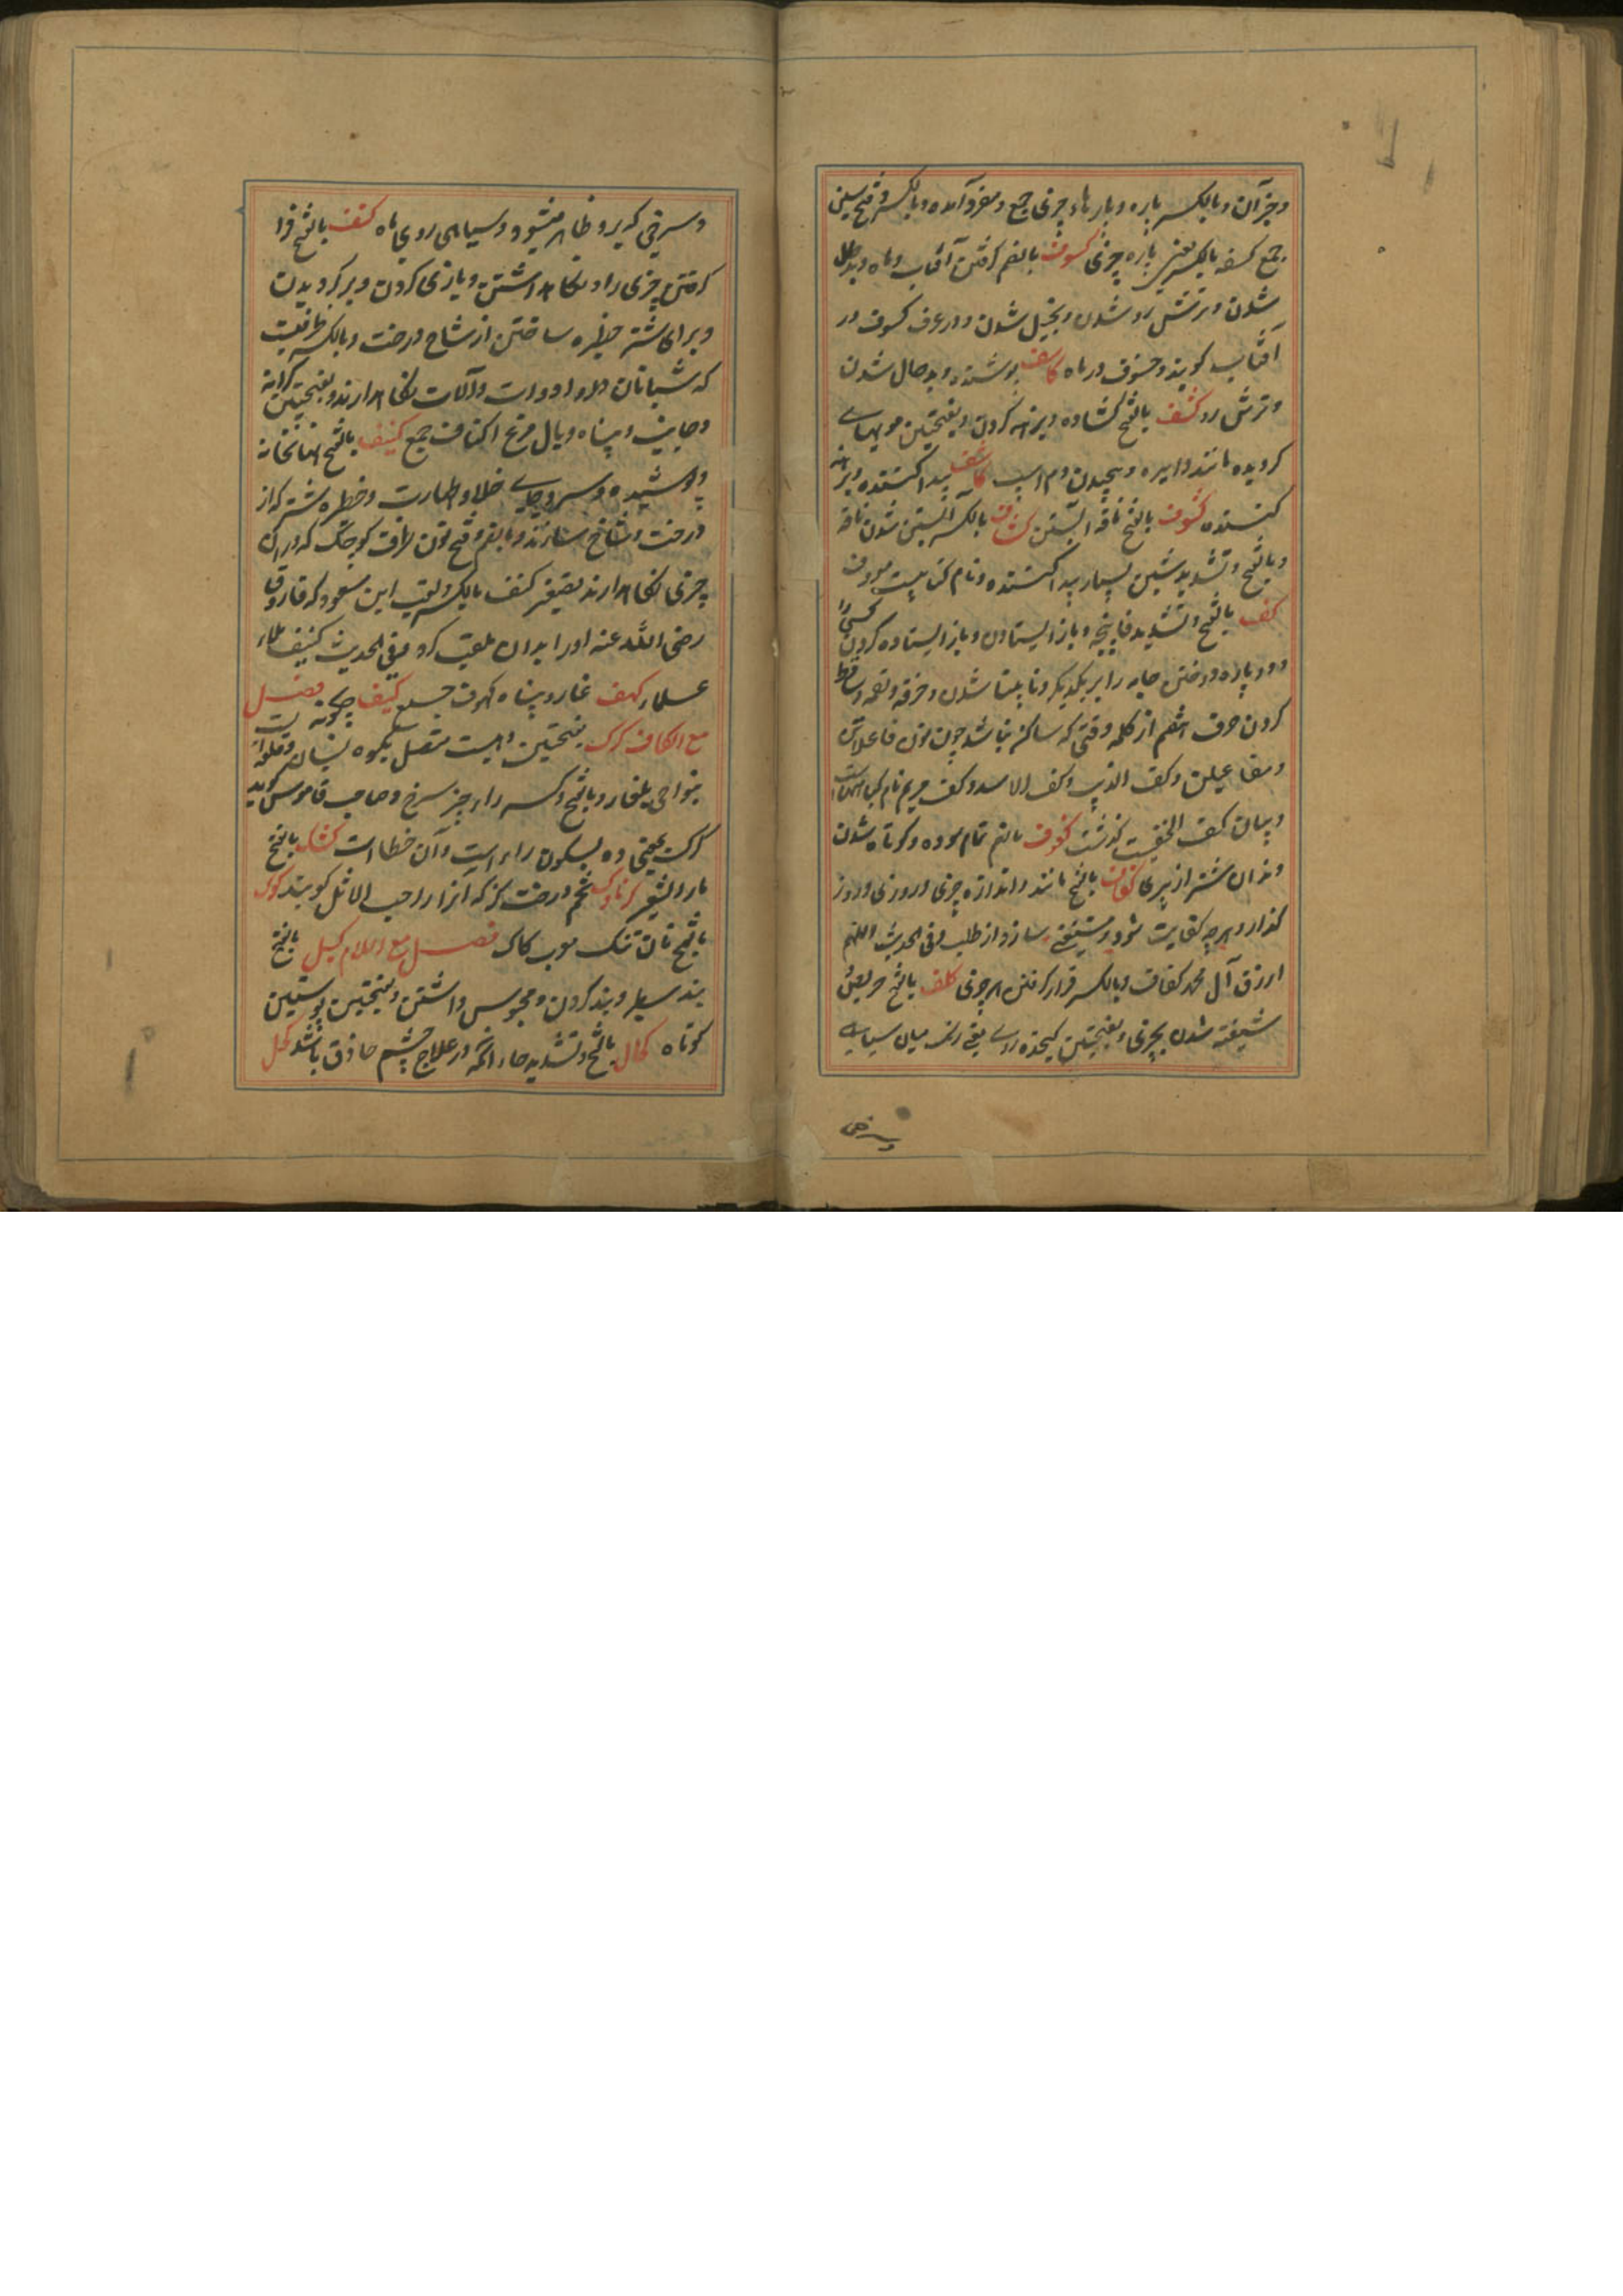 و جز آن و بالکسر پاره و پارهاء چیزی جمع و مفرد آمده و بالکسر و فتح سین
جمع کسفه بالکسر یعنی پاره چیزی کسوف بالضم گرفتن آفتاب و ماه و بدحال
شدن و ترش رو شدن و بخیل شدن و در عرف کسوف در
آفتاب گویند و خسوف در ماه کاسف پوشنده و بدحال شدن
و ترش رو کشف بالفتح گشاده و برهنه کردن و بفتحتین موی پیشانی
گردیده مانند دایره و پیچیدن دم اسپ کاشف پیدا کننده و برهنه
کننده کشوف بالفتح ناقه آبستن کشاف بالکسر آبستن شدن ناقه
و بالفتح و تشدید شین بسیار پیدا کننده و نام کتابیست معروف
کف بالفتح و تشدید فا پنجه و باز ایستادن و باز ایستاده کردن کسی را
و دو پاره دوختن جامه را بر یکدیگر و نابینا شدن و خرقه و لقمه و ساقط
کردن حرف هفتم از کلمه وقتی که ساکن باشد چون نون فاعلاتن
و مفاعیلن و کف الذیب و کف الاسد و کف مریم نام گیاههاست
و بیان کف الخضیب گذشت کفوف بالضم تمام سوده و کوتاه شدن
دندان شتر از پیری کفاف بالفتح مانند و اندازه چیزی و روزی و روز
گذار و هرچه کفایت شود و مستغنی سازد از طلب و فی الحدیث اللهم
ارزق آل محمد کفاف و بالکسر قرار گرفتن هر چیزی کلف بالفتح حریص و
شیفته شدن بچیزی و بفتحتین کنجده روی یعنی رنگ میان سیاهی
وسرخی
و سرخی که برو ظاهر میشود و سیاهی روی ماه کنف بالفتح فرا
گرفتن چیزی را و نگاه داشتن و یاری کردن و برگردیدن
و برای شتر حظیره ساختن از شاخ درخت و بالکسر ظرفیست
که شبانان در او ادوات و آلات نگاه دارند و بفتحتین کرانه
و جانب و پناه و بال مرغ اکناف جمع کنیف بالفتح نهانخانه
و پوشیده و سپر و جای خلا و طهارت و حظیره شتر که از
درخت و شاخ سازند و بالضم و فتح نون ظرف کوچک که در آن
چیزی نگاه دارند تصغیر کنف بالکسر و لقب ابن مسعود که فاروق
رضی الله عنه او را بدان ملقب کرد و فی الحدیث کنیف ملاء
علما کهف غار و پناه کهوف جمع کیف چگونه فصل
مع الکاف کرک بفتحتین دهیست متصل بکوه لبنان و قلعه است
بنواحی بلقا و بالفتح و کسر راء چیز سرخ و صاحب قاموس گوید
کرک بمعنی ده بسکون راء است و آن خطا است کشک بالفتح
ماء الشعیر کزنازک تخم درخت گز که آنرا حب الاثل گویند کوک
بالفتح نان تنک معرب کاک فصل مع اللام کبل بالفتح
بند سطبر و بند کردن و محبوس داشتن و بفتحتین پوستین
کوتاه کحال بالفتح و تشدید حاء آنکه در علاج چشم حاذق باشد کحل